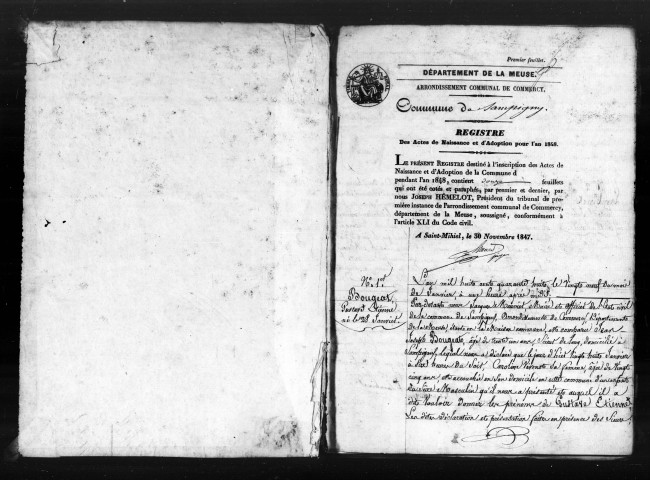 Premier feuillet.
DÉPARTEMENT DE LA MEUSE.
ARRONDISSEMENT COMMUNAL DE COMMERCY.
Commune de Sampigny.
REGISTRE
Des Actes de Naissance et d'Adoption pour l'an 1848.
LE PRÉSENT REGISTRE destiné à l'inscription des Actes de
Naissance et d'Adoption de la Commune d
pendant l'an 1848, contient douze feuillets
qui ont été cotés et paraphés, par premier et dernier, par
nous JOSEPH HÉMELOT, Président du tribunal de pre-
mière instance de l'arrondissement communal de Commercy,
département de la Meuse, soussigné, conformément à
l'article XLI du Code civil.
A Saint-Mihiel, le 30 Novembre 1847.
N° 1er
Bougeat
Gustave Etienne
né le 28 Janvier
L'an mil huit cent quarante huit, le vingt neuf du mois
de Janvier, à une heure après midi,
Par devant nous Jacques Maire et officier de l'état civil
de la commune de Sampigny, Arrondissement de Commercy, Département
de la Meuse, est comparu Jean
Joseph Bougeat, âgé de trente un ans, domicilié à
Sampigny, lequel nous a déclaré que le jour d'hier vingt huit Janvier
à dix heures du soir, Caroline sa femme, âgée de vingt
cinq ans, est accouchée en son domicile en cette commune d'un enfant
du sexe Masculin qu'il nous a présenté et auquel il a
dit vouloir donner les prénoms de Gustave Etienne
Les dites déclaration et présentation faites en présence des Sieurs